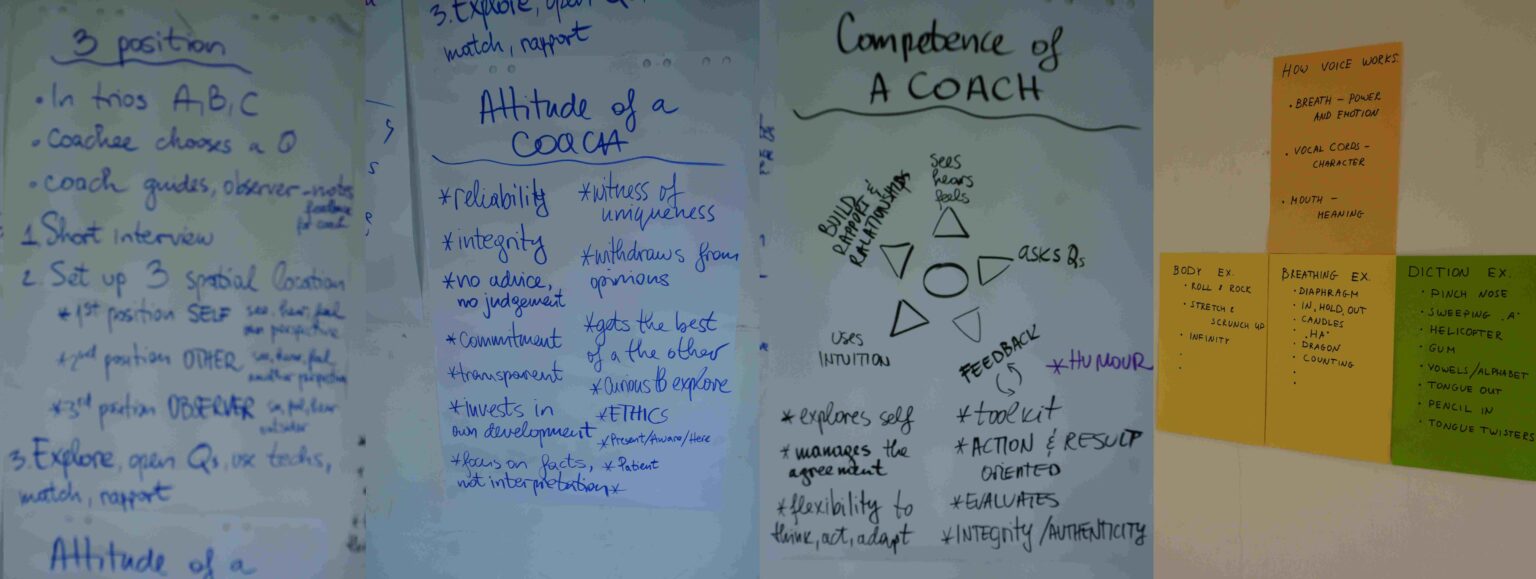 3 position
• In trios A, B, C
• Coachee chooses a Q
• coach guides, observer - notes
feedback
for coach
1. Short interview
2. Set up 3 spatial location
*1st position SELF see, hear, feel
own perspective
*2nd position OTHER see, hear, feel
another perspective
*3rd position OBSERVER see, feel, hear
outsider
3. Explore, open Qs, use techs,
match, rapport
Attitude of a
3. Explore, open Qs
match, rapport
Attitude of a
COACH
*reliability
*integrity
*no advice,
no judgement
*commitment
*transparent
*invests in
own development
*focus on facts,
not interpretation
*witness of
uniqueness
*withdraws from
opinions
*gets the best
of a the other
*curious to explore
*ETHICS
*Present/Aware/Here
*Patient
*
Competence of
A COACH
Sees
hears
feels
BUILD
RAPPORT &
RALATIONSHIPS
asks Qs
USES
INTUITION
FEEDBACK
*HUMOUR
*explores self
*manages the
agreement
*flexibility to
think, act, adapt
*toolkit
*ACTION & RESULT
ORIENTED
*EVALUATES
*INTEGRITY/AUTHENTICITY
HOW VOICE WORKS:
• BREATH - POWER
AND EMOTION
• VOCAL CORDS -
CHARACTER
• MOUTH -
MEANING
BODY EX.
• ROLL & ROCK
• STRETCH &
SCRUNCH UP
• INFINITY
BREATHING EX.
• DIAPHRAGM
• IN, HOLD, OUT
• CANDLES
• "HA"
• DRAGON
• COUNTING
DICTION EX.
• PINCH NOSE
• SWEEPING "A"
• HELICOPTER
• GUM
• VOWELS/ALPHABET
• TONGUE OUT
• PENCIL IN
• TONGUE TWISTERS